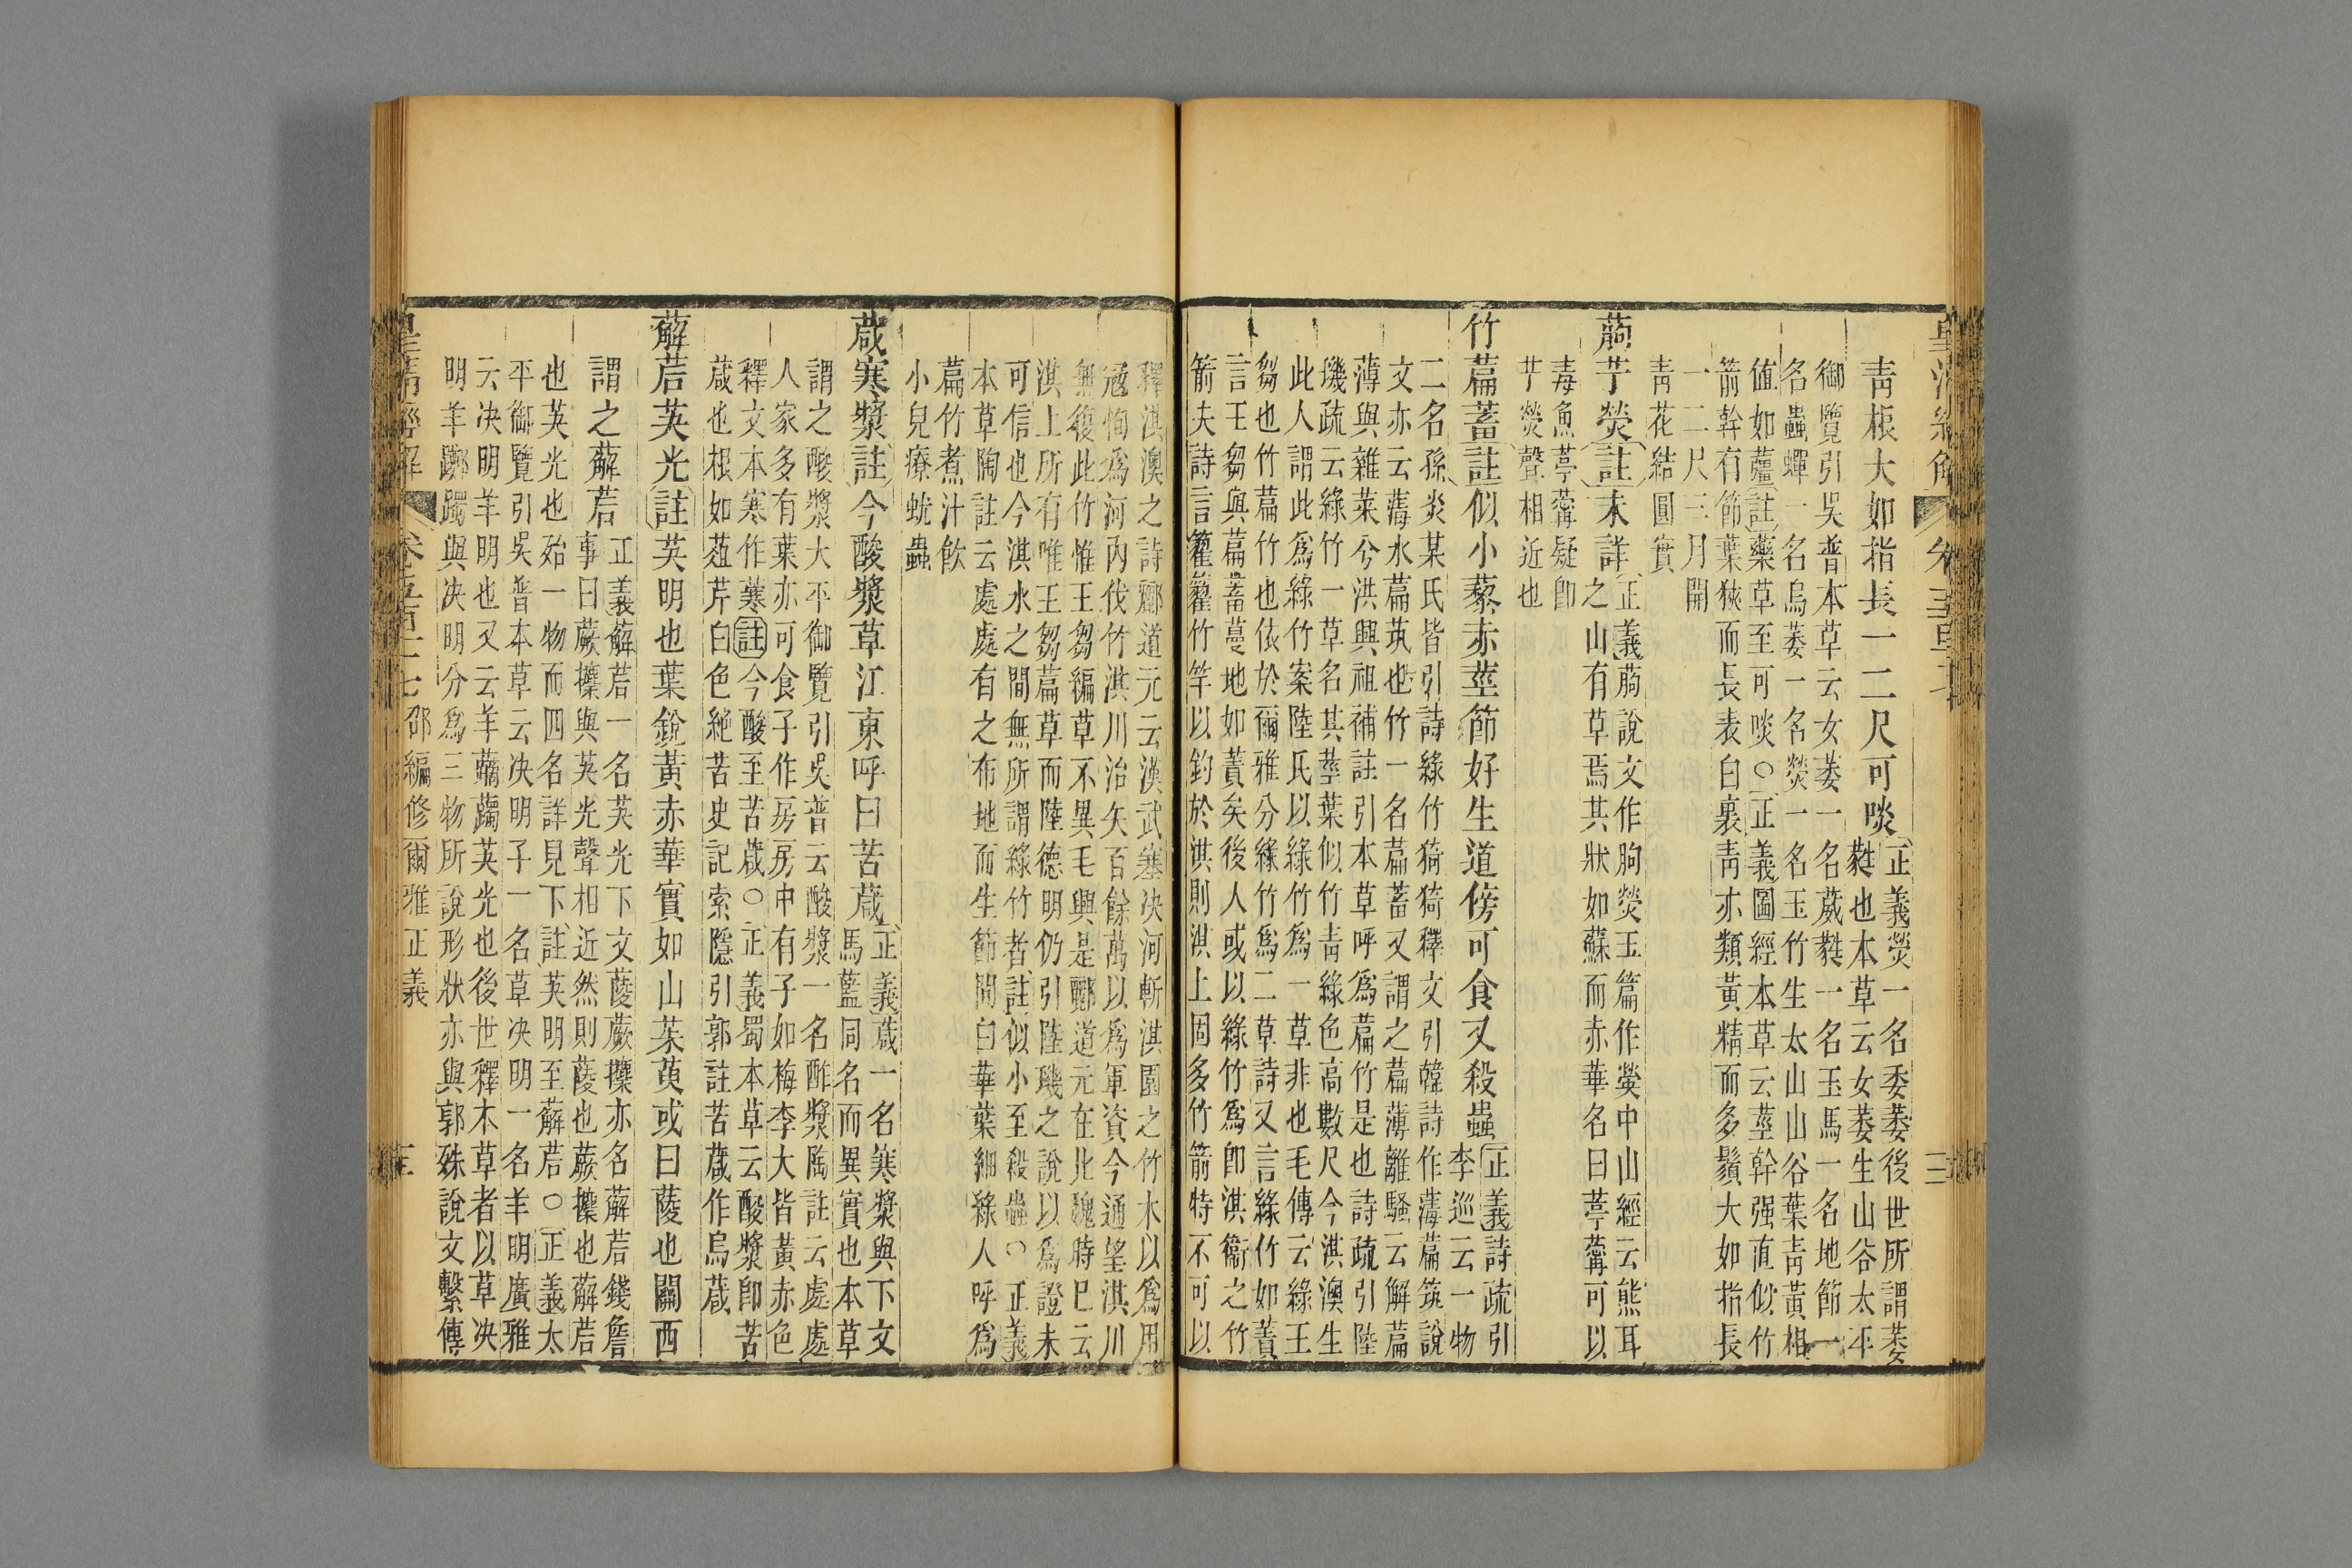 皇清經解 卷五百十七 三
青根大如指長一二尺可啖正義熒一名委萎後世所謂萎
蕤也本草云女萎生山谷太平
御覽引吳普本草云女萎一名葳蕤一名玉馬一名地節一
名蟲蟬一名烏萎一名熒一名玉竹生太山山谷葉青黃相
值如薑註藥草至可啖○正義圖經本草云莖幹强直似竹
箭幹有節葉狹而長表白裏青亦類黃精而多鬚大如指長
一二尺三月開
青花結圓實
葋艼熒註未詳正義葋說文作朐熒玉篇作𦽄中山經云熊耳
之山有草焉其狀如蘇而赤華名曰葶薴可以
毒魚葶薴疑即
艼熒聲相近也
竹萹蓄註似小藜赤莖節好生道傍可食又殺蟲正義詩疏引
李巡云一物
二名孫炎某氏皆引詩綠竹猗猗釋文引韓詩作薄萹筑說
文亦云薄水萹茿也竹一名萹蓄又謂之萹薄離騷云解萹
薄與雜菜兮洪興祖補註引本草呼爲萹竹是也詩疏引陸
璣疏云綠竹一草名其莖葉似竹青綠色高數尺今淇澳生
此人謂此爲綠竹案陸氏以綠竹爲一草非也毛傳云綠王
芻也竹萹竹也依於爾雅分綠竹爲二草詩又言綠竹如簀
言王芻與萹蓄蔓地如簀矣後人或以綠竹爲卽淇衞之竹
箭夫詩言籊籊竹竿以釣於淇則淇上固多竹箭特不可以
釋淇澳之詩酈道元云漢武塞決河斬淇園之竹木以爲用
寇恂爲河內伐竹淇川治矢百餘萬以爲軍資今通望淇川
無復此竹惟王芻編草不異毛興是酈道元在北魏時已云
淇上所有唯王芻萹草而陸德明仍引陸璣之說以爲證未
可信也今淇水之間無所謂綠竹者註似小至殺蟲○正義
本草陶註云處處有之布地而生節間白華葉細綠人呼爲
萹竹煮汁飲
小兒療蚘蟲
葴寒漿註今酸漿草江東呼曰苦葴正義葴一名寒漿與下文
馬藍同名而異實也本草
謂之酸漿大平御覽引吳普云酸漿一名酢漿陶註云處處
人家多有葉亦可食子作房房中有子如梅李大皆黃赤色
釋文本寒作𦽚註今酸至苦葴○正義蜀本草云酸漿即苦
葴也根如葅芹白色絕苦史記索隱引郭註苦葴作烏葴
薢茩芵光註芵明也葉銳黃赤華實如山茱萸或曰䔖也關西
謂之薢茩正義薢茩一名芵光下文䔖蕨攗亦名薢茩錢詹
事曰蕨攗與芵光聲相近然則䔖也蕨攗也薢茩
也芵光也殆一物而四名詳見下註芵明至薢茩○正義太
平御覽引吳普本草云决明子一名草决明一名羊明廣雅
云决明羊明也又云羊䕱䕽芵光也後世釋本草者以草决
明羊躑躅與决明分爲三物所說形狀亦與郭殊說文繫傳
皇清經解 卷五百十七 邵編修爾雅正義 三